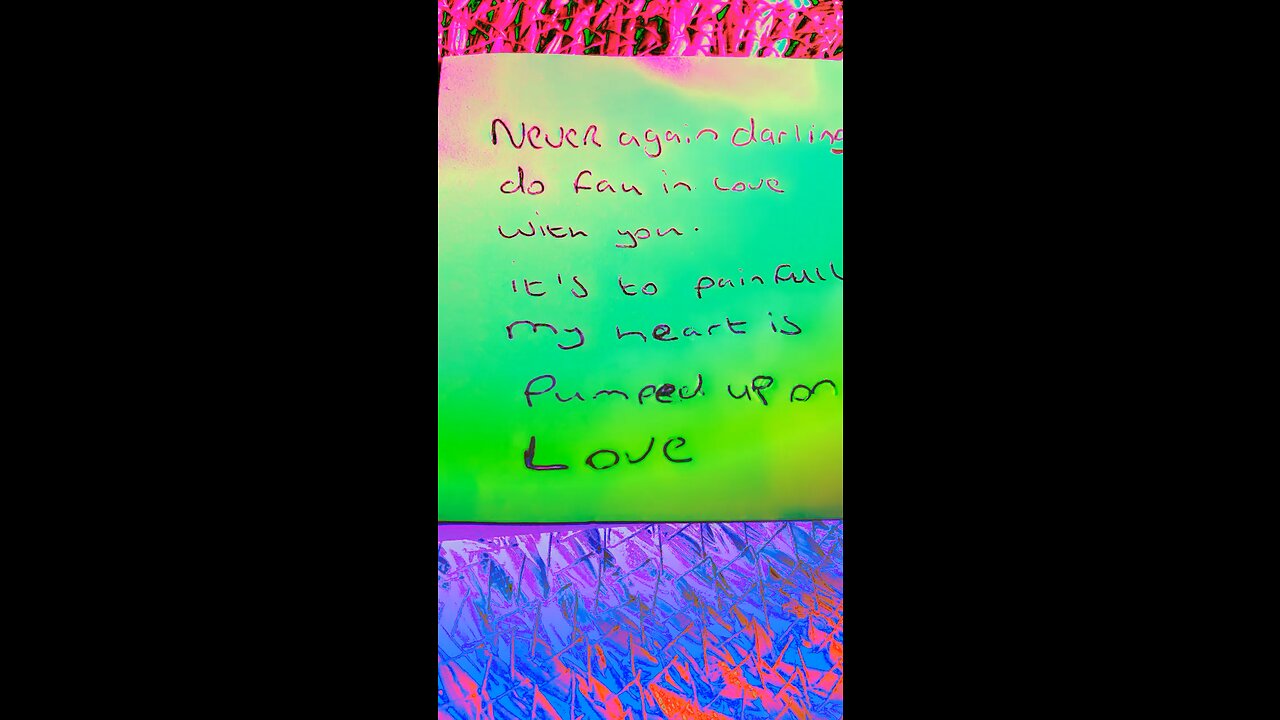 Never again darling
do fall in love
with you.
it's to painfull
my heart is
Pumped up on
Love